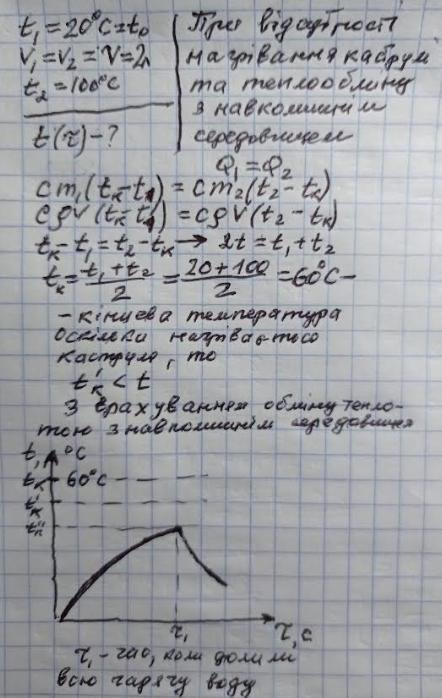 t₁ = 20°C = t₀
V₁ = V₂ = V = 2л
t₂ = 100°C
t(τ) - ?
При відсутності
нагрівання каструлі
та теплообміну
з навколишнім
середовищем
Q₁ = Q₂
cm₁(tк - t₁) = cm₂(t₂ - tк)
cρV(tк - t₁) = cρV(t₂ - tк)
tк - t₁ = t₂ - tк → 2t = t₁ + t₂
tк = (t₁ + t₂)/2 = (20 + 100)/2 = 60°C -
- кінцева температура
Оскільки нагрівається
каструля, то
t'к < t
З врахуванням обміну тепло-
тою з навколишнім середовищем
t, °C
tк 60°C
t'к
t''к
τ₁ τ, c
τ₁ - час, коли долили
всю гарячу воду